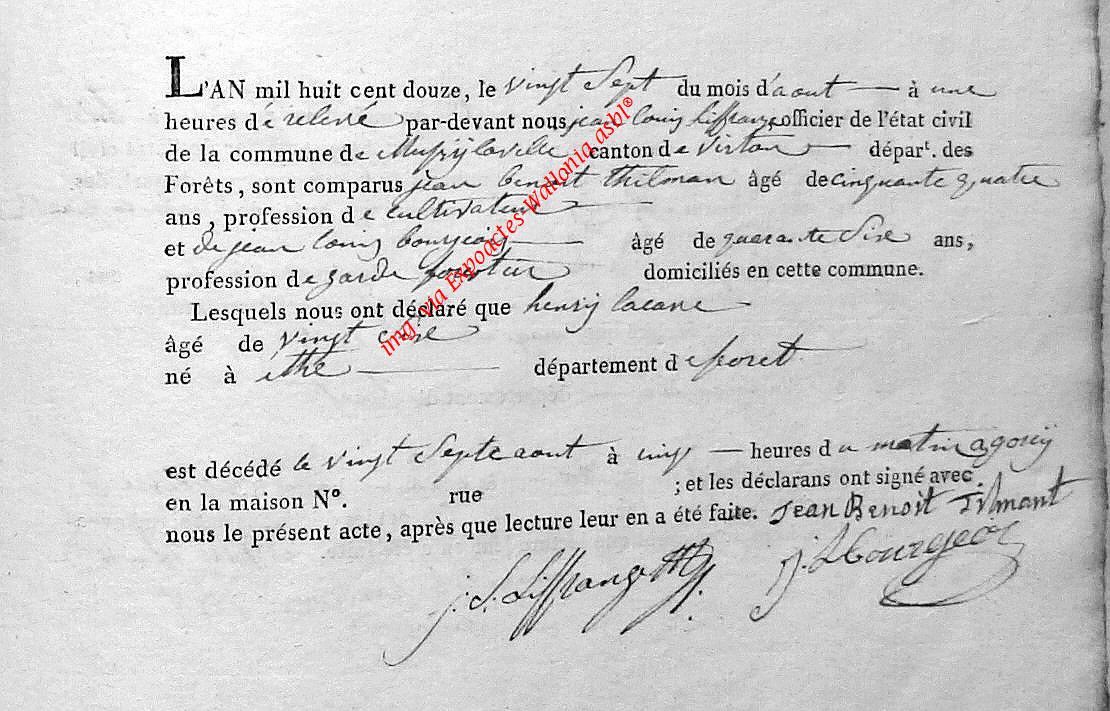 L'AN mil huit cent douze, le vingt Sept du mois d'aout à une
heures de relevé par-devant nous jean louis liffrange officier de l'état civil
de la commune de Mussy la ville canton de virton départ. des
Forêts, sont comparus jean benoit thilman âgé de cinquante quatre
ans, profession de cultivateur
et de jean louis bourgeois âgé de quarante Six ans,
profession de garde foretier domiciliés en cette commune.
Lesquels nous ont déclaré que henry lacave
âgé de vingt
né à ethe département de foret
est décédé le vingt Septe aout à cinq heures du matin a gomry
en la maison N°. rue ; et les déclarans ont signé avec
nous le présent acte, après que lecture leur en a été faite. Jean Benoit Tilmant
J. L. Liffrange J. L bourgeois
img via Expoactes-Wallonia asbl®